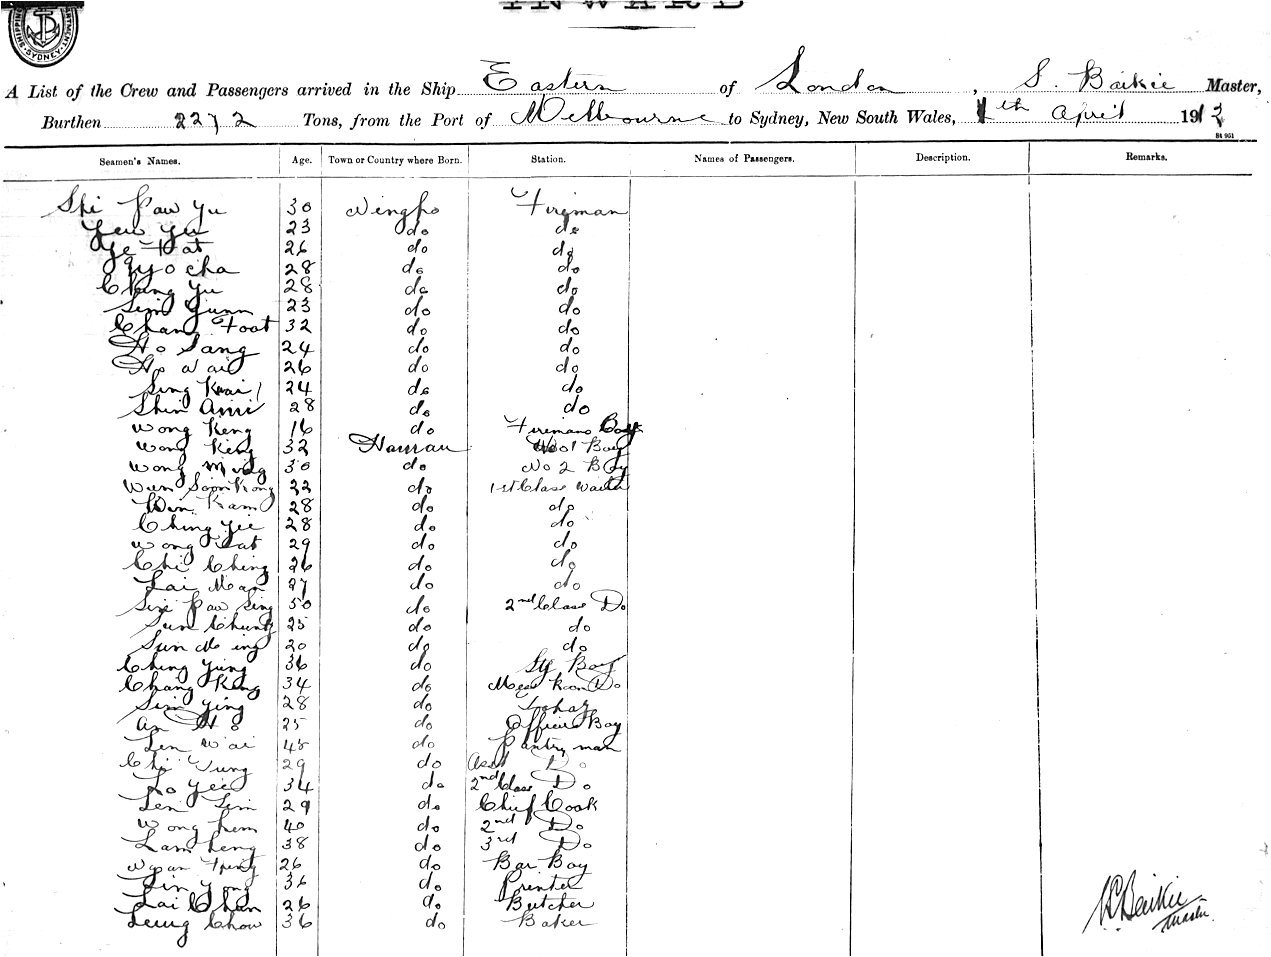 INWARD
SYDNEY
A List of the Crew and Passengers arrived in the Ship Eastern of London, S. Baikie Master,
Burthen 2272 Tons, from the Port of Melbourne to Sydney, New South Wales, th April 1912
Seamen's Names. Age. Town or Country where Born. Station. Names of Passengers. Description. Remarks.
Shi Paw Yu 30 Ningpo Fireman
Yew Yu 23 do do
Ye Hat 26 do do
cha 28 do do
Ching Yu 28 do do
Sim Yunn 23 do do
Chan Foat 32 do do
Ho Sang 24 do do
Ho Wai 26 do do
Sing Kwai 24 do do
Shin Ami 28 do do
Wong Keng 16 do Firemans Boy
Wong Keng 32 Hainan No 1 Boy
Wong Ming 30 do No 2 Boy
Wun Soon Kong 22 do 1st Class Waiter
Kam 28 do do
Ching Yee 28 do do
Wong Kat 29 do do
Chi Ching 26 do do
Lai Man 27 do do
Sim Paw Sing 50 do 2nd Class Do
Sun Chung 25 do do
Sun Ming 20 do do
Ching Ying 36 do Boy
Chang King 34 do Mess Room Do
Sim Ying 28 do
Ho 25 do Officers Boy
Lim Wai 45 do Pantry man
Chi Tung 29 do Asst Do
Lo Yee 34 do 2nd Class Do
Len Sim 29 do Chief Cook
Wong Lem 40 do 2nd Do
Lam Leng 38 do 3rd Do
26 do Bar Boy
Lin Yong 36 do Printer
Lai Chan 26 do Butcher
Leung Chow 36 do Baker
S. Baikie
Master